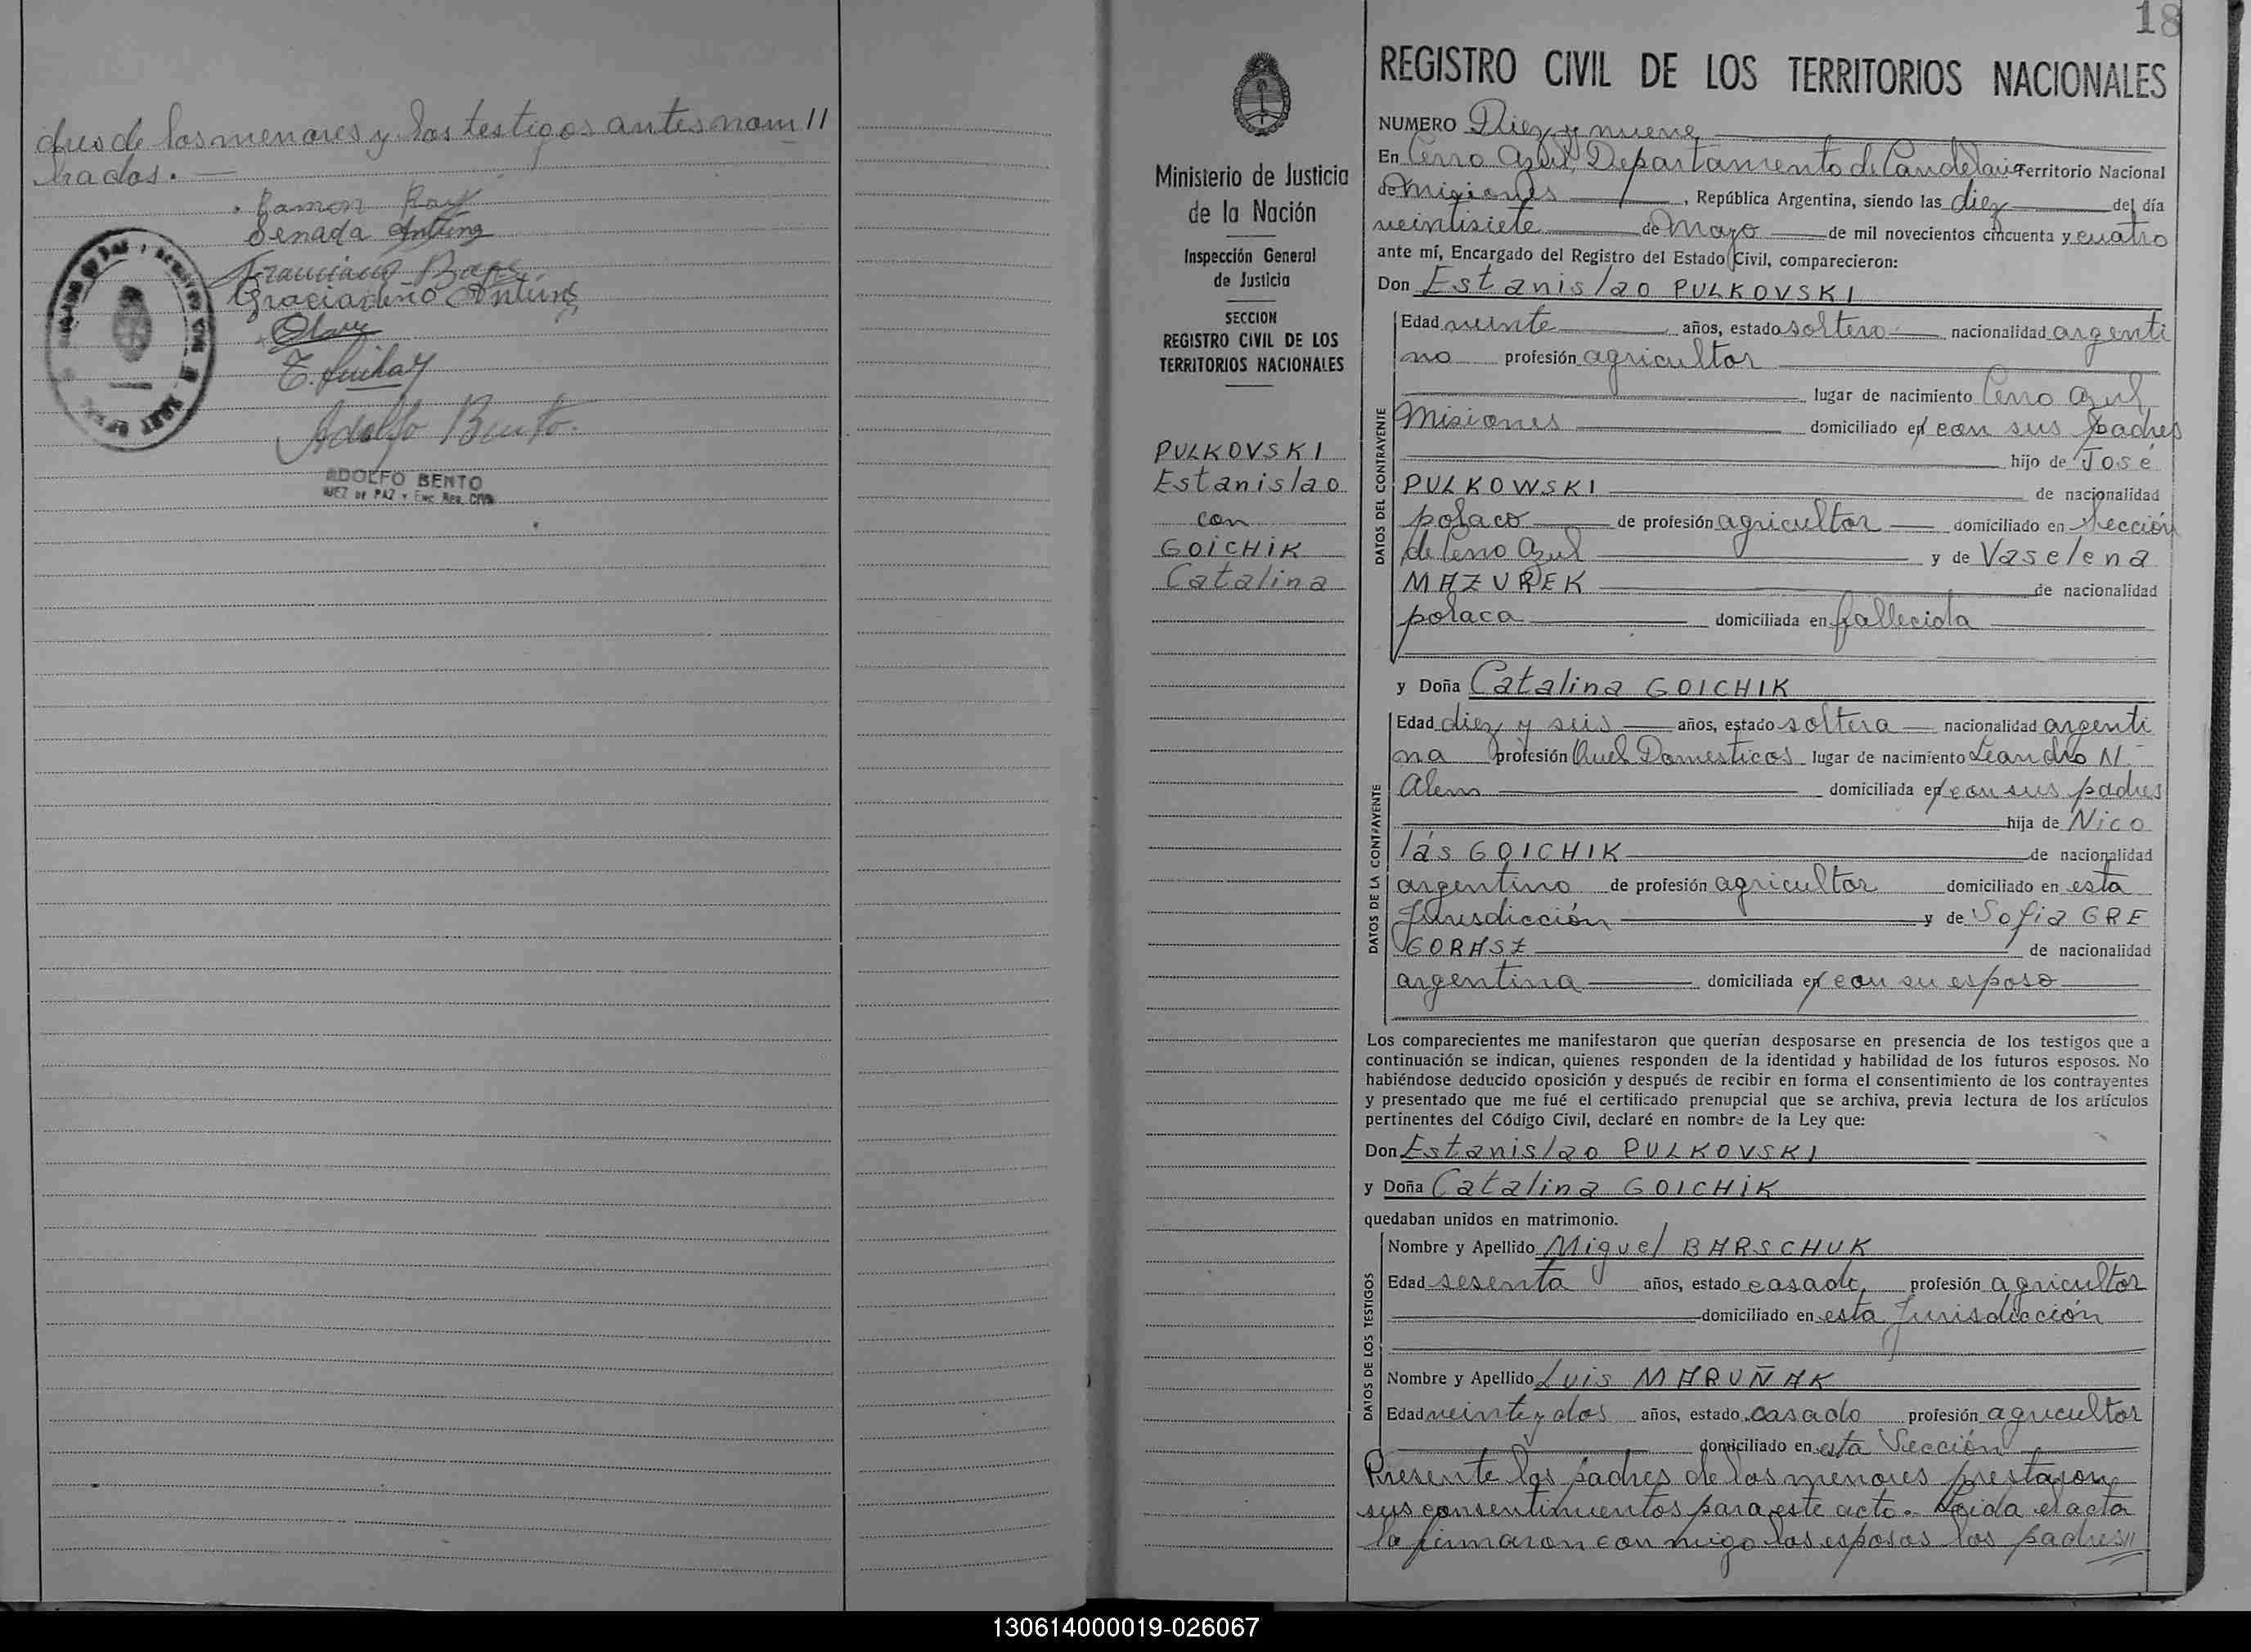 dres de los menores y los testigos antes nom//
brados. —
Ramon Ray
Senada Antúng
Adolfo Bento.
ADOLFO BENTO
JUEZ DE PAZ y Enc. Reg. Civil
18
REGISTRO CIVIL DE LOS TERRITORIOS NACIONALES
Ministerio de Justicia
de la Nación
Inspección General
de Justicia
SECCION
REGISTRO CIVIL DE LOS
TERRITORIOS NACIONALES
PULKOVSKI
Estanislao
con
GOICHIK
Catalina
NUMERO Diez y nueve
En Cerro Azul, Departamento de Candelaria Territorio Nacional
de Misiones, República Argentina, siendo las diez del día
veintisiete de Mayo de mil novecientos cincuenta y cuatro
ante mí, Encargado del Registro del Estado Civil, comparecieron:
Don Estanislao PULKOVSKI
DATOS DEL CONTRAYENTE
Edad veinte años, estado soltero nacionalidad argenti
no profesión agricultor
lugar de nacimiento Cerro Azul,
Misiones domiciliado en con sus padres
hijo de José
PULKOWSKI de nacionalidad
polaco de profesión agricultor domiciliado en Sección
de Cerro Azul y de Vaselena
MAZUREK de nacionalidad
polaca domiciliada en fallecida
y Doña Catalina GOICHIK
DATOS DE LA CONTRAYENTE
Edad diez y seis años, estado soltera nacionalidad argenti
na profesión Quel Domesticos lugar de nacimiento Leandro N.
Alem domiciliada en con sus padres
hija de Nico
lás GOICHIK de nacionalidad
argentino de profesión agricultor domiciliado en esta
Jurisdicción y de Sofia GRE
GORASZ de nacionalidad
argentina domiciliada en con su esposo
Los comparecientes me manifestaron que querían desposarse en presencia de los testigos que a
continuación se indican, quienes responden de la identidad y habilidad de los futuros esposos. No
habiéndose deducido oposición y después de recibir en forma el consentimiento de los contrayentes
y presentado que me fué el certificado prenupcial que se archiva, previa lectura de los artículos
pertinentes del Código Civil, declaré en nombre de la Ley que:
Don Estanislao PULKOVSKI
y Doña Catalina GOICHIK
quedaban unidos en matrimonio.
DATOS DE LOS TESTIGOS
Nombre y Apellido Miguel BARSCHUK
Edad sesenta años, estado casado, profesión agricultor
domiciliado en esta Jurisdicción
Nombre y Apellido Luis MARUÑAK
Edad veinte y dos años, estado casado profesión agricultor
domiciliado en esta Sección
Presente los padres de los menores prestaron
sus consentimientos para este acto. - Leida el acta
la firmaron con migo los esposos los padres//
130614000019-026067